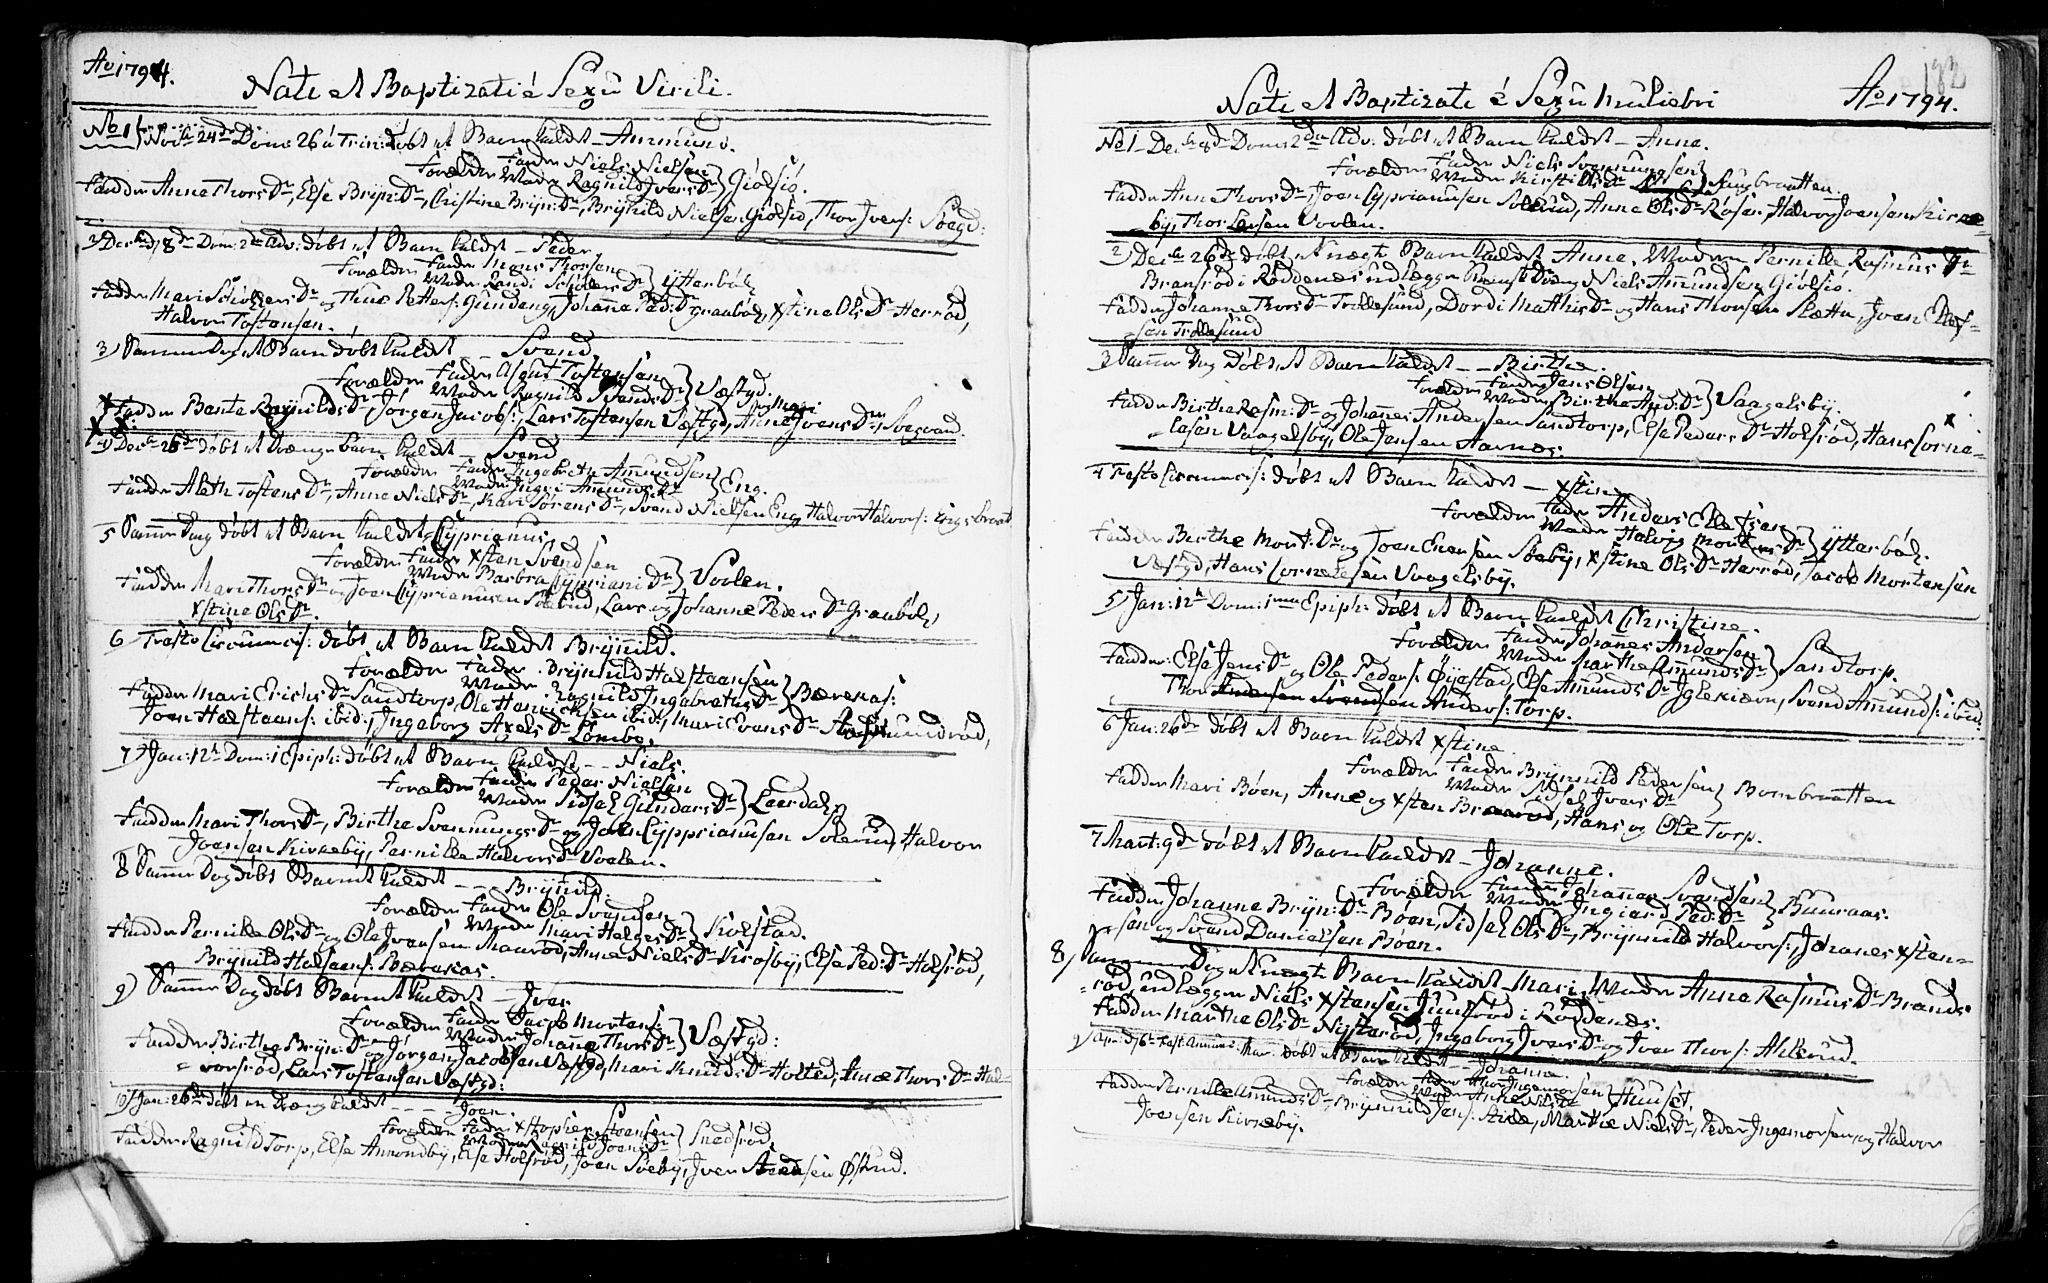 Ao 1794.
Nati et Baptizati é Sexu Virili.
No 1 Novbr 24de Dom: 26 á Trin: døbt et Barn kaldet – Ammund.
Forældre Fader Niels Nielsen
Moder Ragnild Ivers Dr } Giølsiø.
Faddere Anne Thors Dr, Else Brijn: Dr, Christine Brijn: Dr, Brijnild Nielsen Giølsiø, Thor Ivers:
2 Decbr 8de Dom: 2de Adv: døbt et Barn kaldet – Peder
Forældre Fader Thorsen
Moder Randi Dr } Ytterbøl
Faddere Mari Dr og Thue Petters: Johanne Ped: Dr Graabøl, Xstine Ols Dr Herrød,
Halvor Tostensen.
3) Samme Dag et Barn døbt kaldet – Svend
Forældre Fader Asgut Tostensen
Moder Ragnild Svends Dr } Væstgd.
Faddere Bente Brijnilds Dr, Jørgen Jacobs:, Lars Tostensen Væstgd, Anne og Mari Ivers Drr,
4) Decbr 26de døbt et Drænge barn kaldet – Svend
Forældre Fader Ingebreth Amundsen
Moder Ingri Amunds Dr } Eng.
Faddere Aleth Tostens Dr, Anne Niels Dr, Kari Sørens Dr, Svend Nielsen Eng, Halvor Halvors: Engsbraat
5 Samme Dag døbt et Barn kaldet – Cyprianus
Forældre Fader Xsten Svendsen
Moder Barbra Cypriani Dr } Voolen.
Faddere Mari Thors Dr og Joen Cyprianusen Solerud, Lars og Johanne Peders Dr Graabøl,
Xstine Ols Dr.
6 Festo Circumcis: døbt et Barn kaldet Brijnild.
Forældre Fader Brijnild Halstaansen
Moder Ragnild Ingebreths Dr } Bærekas:
Faddere Mari Erichs Dr Sandtorp, Ole Henrichsen ibid:, Mari Evens Dr
Joen Halstaans: ibid:, Ingeborg Axels Dr Lombe.
7) Jan: 12te Dom: 1 Epiph: døbt et Barn kaldet – – Niels.
Forældre Fader Peder Nielsen
Moder Sidsel Gunders Dr } Leerdal
Faddere Mari Thors Dr, Birthe Svennungs Dr og Joen Cyprianusen Solerud, Halvor
Joensen Kirkeby, Pernille Halvors Dr Voolen.
8 Samme Dag døbt Barnet kaldet – – Brijnild.
Forældre Fader Ole Svendsen
Moder Mari Helges Dr } Kolstad.
Faddere Pernille Ols Dr og Ole Iversen Maurød, Anne Niels Dr Krosby, Else Ped: Dr Holsrød,
Brijnild Halstans: Bærekas.
9) Samme Dag døbt Barnet kaldet – Iver
Forældre Fader Jacob Mortens:
Moder Johanne Thors Dr } Væstgd:
Faddere Birthe Brijn: Dr og Jørgen Jacobsen Væstgd, Mari Knuds Dr Holted, Anne Thors Dr Hal-
=vorsrød, Lars Tostensen Væstgd:
10) Jan: 26de døbt en Dræng kaldet – – – Joen.
Forældre Fader Xstopher Joensen
Moder Ragnild Joens Dr } Snedsrød
Faddere Ragnild Torp, Else Ammondby, Else Holsrød, Joen Søeby, Iver
Nati et Baptizati é Sexu Muliebri
Ao 1794.
182
No 1 Decbr 8de Dom: 2den Adv: døbt et Barn kaldet – Anne.
Forældre Fader Niels Svennungsen
Moder Kirsti Ols Dr
Faddere Anne Thors Dr, Joen Cyprianusen Solerud, Anne Ols Dr Røser, Halvor Joensen Kirke=
by, Thor Larsen Voolen.
2) Decbr 26de døbt et uægte Barn kaldet Anne. Moderen Pernille Rasmus Dr
Bransrød i Røddenæs udlægger Dræng Niels Amundsen Giølsiø.
Faddere Johanne Thors Dr Trollesund, Dordi Mathis Dr og Hans Thorsen Slætta, Joen
sen Trollesund
3 Samme Dag døbt et Barn kaldet – – Birthe.
Forældre Fader Jens Olsen
Moder Birthe And: Dr } Vaagelsby.
Faddere Birthe Rasm: Dr og Johannes Andersen Sandtorp, Else Peders Dr Holsrød, Hans Corne=
lesen Vaagelsby, Ole Jensen Harnæs.
4 Festo Circumcis: døbt et Barn kaldet – Xstine
Forældre Fader Anders Ellefsen
Moder Halvig Mortens Dr } Ytterbøl.
Faddere Birthe Mort: Dr og Joen Evensen Søeby, Xstine Ols Dr Herrød, Jacob Mortensen
Væstgd, Hans Cornelesen Vaagelsby.
5) Jan: 12te Dom: 1ma Epiph: døbt et Barn kaldet Christine.
Forældre Fader Johannes Andersen
Moder Marthe Amunds Dr } Sandtorp.
Faddere: Else Jens Dr og Ole Peders: Øyestad, Else Amunds Dr Igletiærn, Svend Amunds: ibid:
Thor Anders: Torp.
6 Jan: 26de døbt et Barn kaldet Xstine.
Forældre Fader Brijnild Pedersen
Moder Sidsel Ivers Dr } Bombraatten
Faddere Mari Bøen, Anne og Xsten Bræerud, Hans og Ole Torp.
7 Mart: 9de døbt et Barn kaldet – Johanne.
Forældre Fader Johannes Svendsen
Moder Ingiard Ped: Dr } Buuraas.
Faddere Johanne Brijn: Dr Bøen, Sidsel Ols Dr, Brijnild Halvors:, Johanes Xsten=
sen og Svend Danielsen Bøen.
8) Samme Dag et uægte Barn kaldet Mari, Moder Anne Rasmus Dr Brands
=rød, udlægger Niels Xstensen Juulsrød i Røddenæs.
Faddere Marthe Ols Dr Nysterød, Ingeborg Ivers Dr og Iver Thors: Ahlerud.
9) Apr: d 6te Fest: Annunc: Mar: døbt et Barn kaldet – Johanne.
Forældre Fader Thor Ingemorsen
Moder Anne Niels Dr } Huuset.
Faddere Pernille Amunds Dr, Brijnild Jens: Marthe Niels Dr, Peder Ingemorsen og Halvor
Joensen Kirkeby.